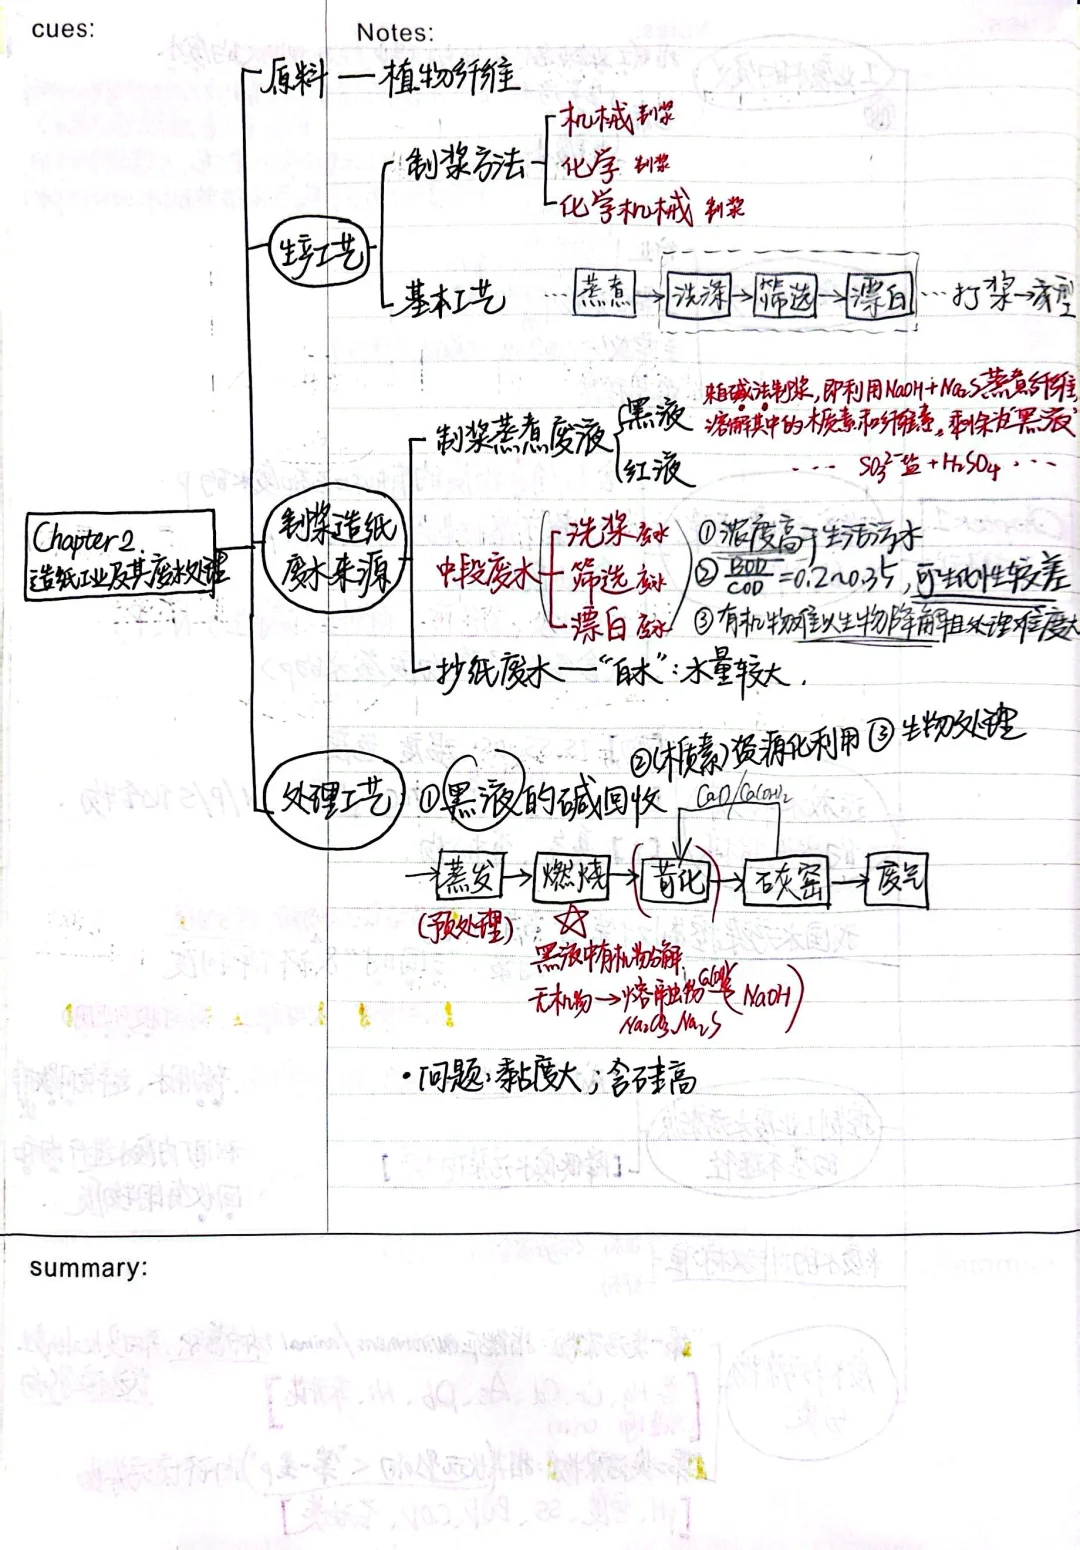 cues:
Notes:
原料 — 植物纤维
生产工艺
制浆方法
机械制浆
化学制浆
化学机械制浆
基本工艺
… 蒸煮 → 洗涤 → 筛选 → 漂白 … 打浆 → 成型
Chapter 2.
造纸工业及其废水处理
制浆造纸
废水来源
制浆蒸煮废液
黑液
来自碱法制浆,即利用NaOH+Na₂S蒸煮纤维,
溶解其中的木质素和纤维素,剩余为"黑液"
红液
… SO₃²⁻盐+H₂SO₄ …
中段废水
洗浆废水
筛选废水
漂白废水
① 浓度高于生活污水
② BOD/COD = 0.2~0.35, 可生化性较差
③ 有机物难以生物降解且处理难度大
抄纸废水 — "白水": 水量较大.
处理工艺
① 黑液的碱回收
② (木质素)资源化利用 ③ 生物处理
CaO/Ca(OH)₂
→ 蒸发 → 燃烧 → (苛化) → 石灰窑 → 废气
(预处理)
☆
黑液中有机物分解
无机物 → 熔融物 Ca(OH)₂ (NaOH)
Na₂CO₃、Na₂S
• 问题: 黏度大; 含硅高
summary: